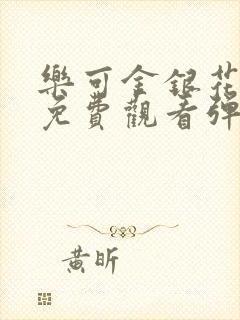 樂可金銀花
免費觀看彈
黃昕